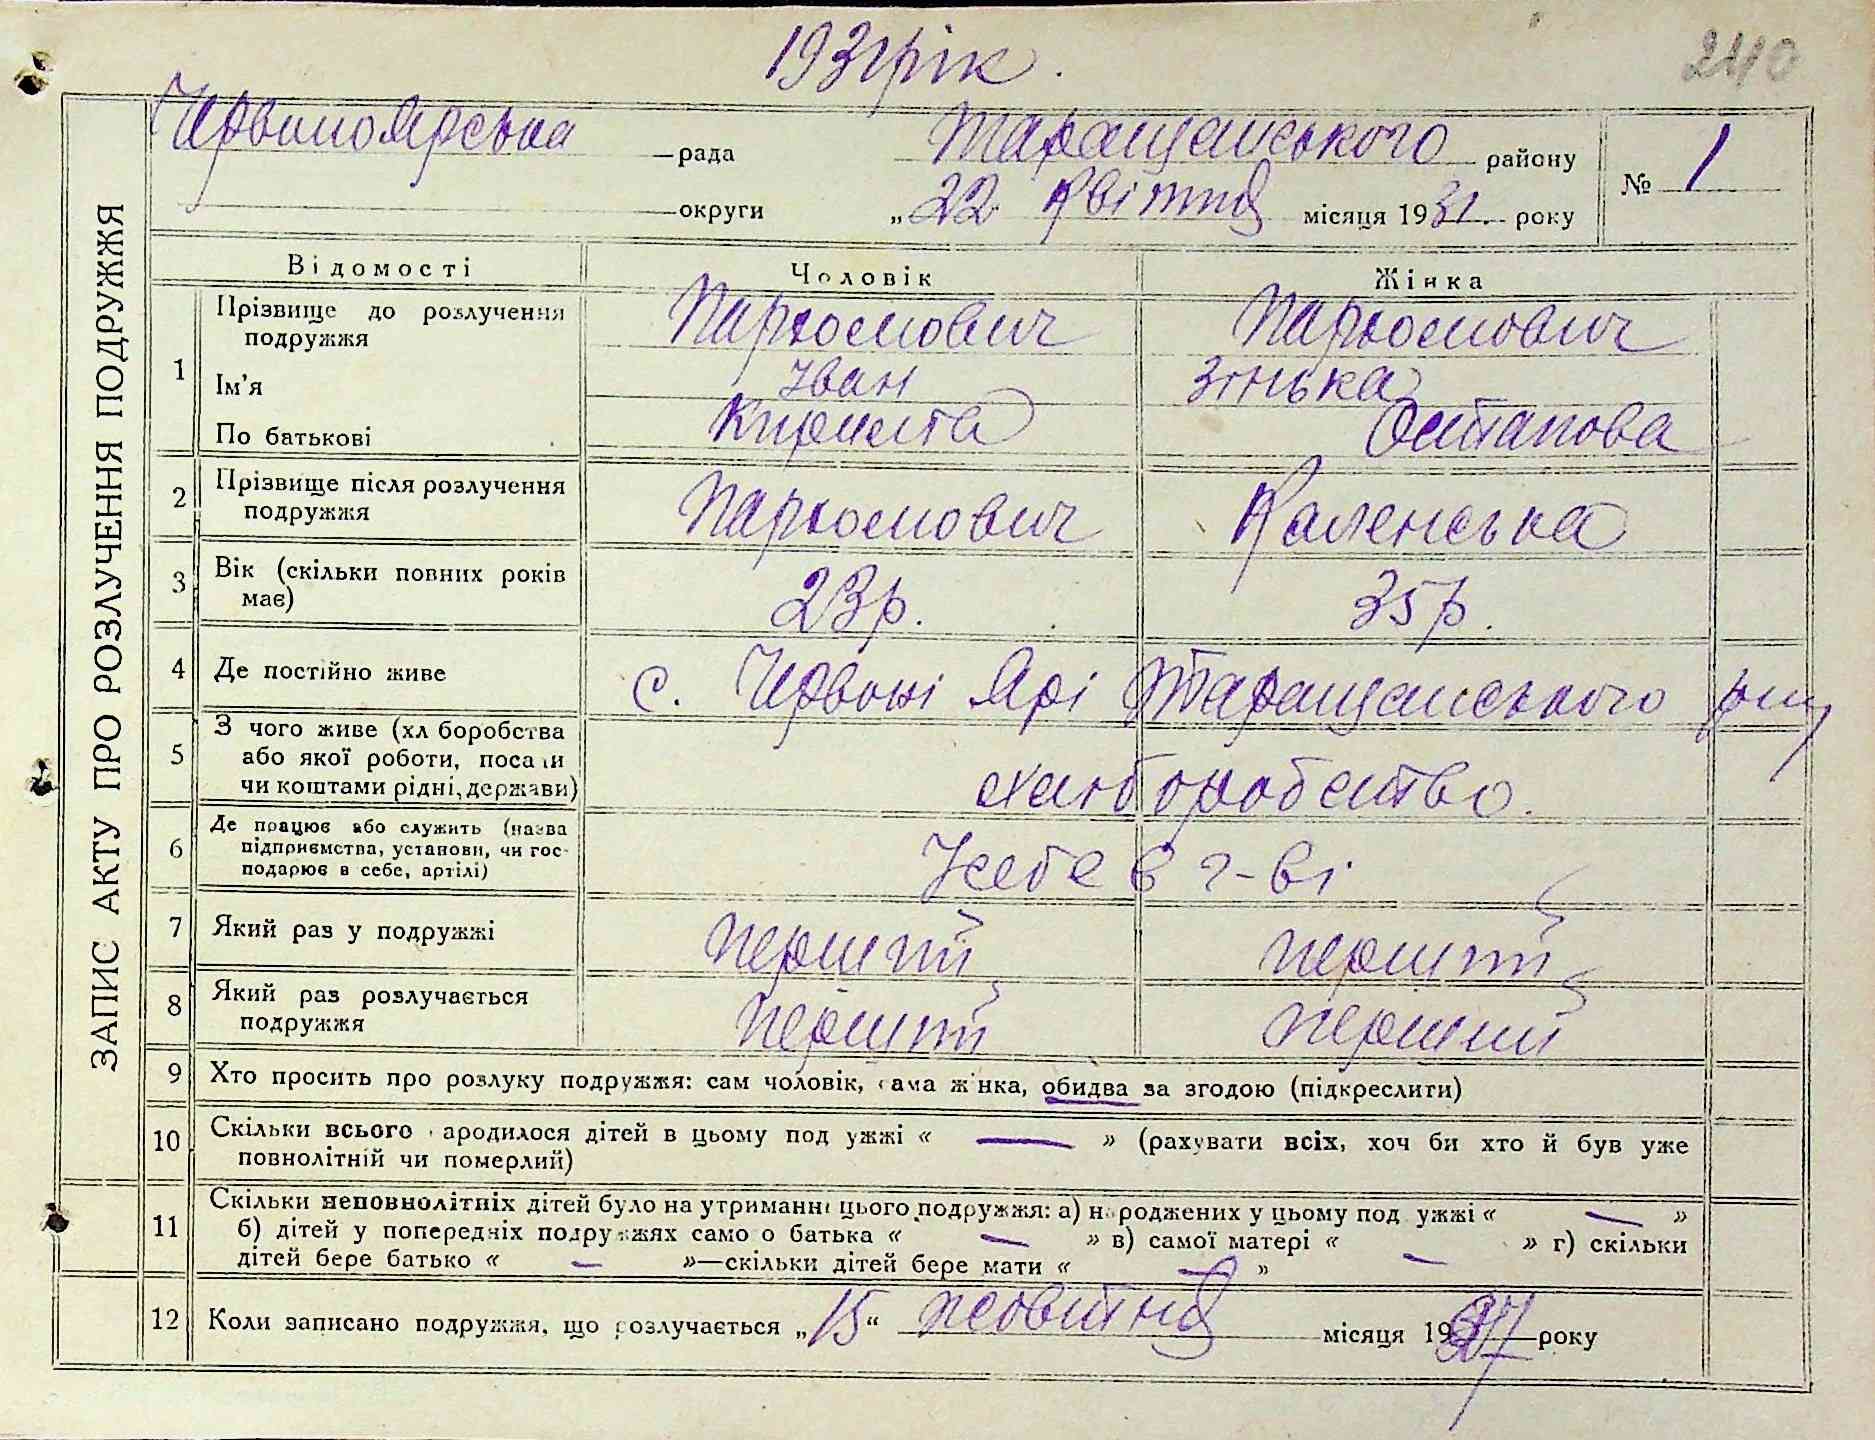 1931 рік.
240
ЗАПИС АКТУ ПРО РОЗЛУЧЕННЯ ПОДРУЖЖЯ
Червоноярська рада Таращанського району
№ 1
округи „22 Квітня місяця 1931. року
Відомості Чоловік Жінка
1 Прізвище до розлучення подружжя Пархомович Пархомович
Ім'я Іван Зінька
По батькові Кирилів Остапова
2 Прізвище після розлучення подружжя Пархомович Каленська
3 Вік (скільки повних років має) 23р. 35р.
4 Де постійно живе с. Червоні Ярі Таращанського р-ну
5 З чого живе (хл боробства або якої роботи, посади чи коштами рідні, держави) хліборобство.
6 Де працює або служить (назва підприємства, установи, чи господарює в себе, артілі) У себе в г-ві
7 Який раз у подружжі перший перший
8 Який раз розлучається подружжя перший перший
9 Хто просить про розлуку подружжя: сам чоловік, сама жінка, обидва за згодою (підкреслити)
10 Скільки всього народилося дітей в цьому подружжі « — » (рахувати всіх, хоч би хто й був уже
повнолітній чи померлий)
11 Скільки неповнолітніх дітей було на утриманні цього подружжя: а) народжених у цьому подружжі « — »
б) дітей у попередніх подружжях самого батька « — » в) самої матері « — » г) скільки
дітей бере батько « — »—скільки дітей бере мати « — »
12 Коли записано подружжя, що розлучається „15“ жовтня місяця 19 року